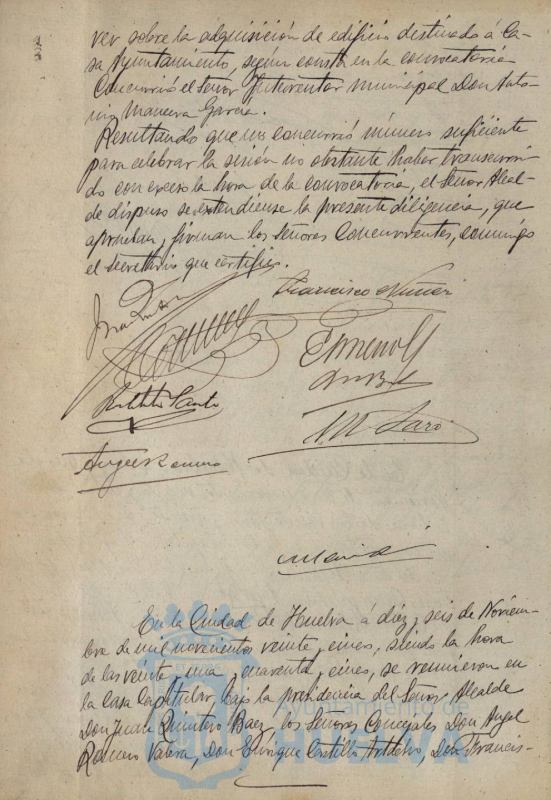 ver sobre la adquisición de edificio destinado á Ca-
sa Ayuntamiento, según consta en la convocatoria
Concurrió el señor Interventor municipal Don Anto-
nio Manuera García.
Resultando que no concurrió número suficiente
para celebrar la sesión no obstante haber transcurri-
do con exceso la hora de la convocatoria, el Señor Alcal-
de dispuso se extendiense la presente diligencia, que
aprueban y firman los señores Concurrentes, conmigo
el secretario que certifico.
Francisco Muñoz
Angel Romero
M Saro
En la Ciudad de Huelva á diez y seis de Noviem-
bre de mil novecientos veinte y cinco, siendo la hora
de las veinte y una y cuarenta y cinco, se reunieron en
la Casa Capitular, bajo la presidencia del Señor Alcalde
Don Juan Quintero Baez, los Señores Concejales Don Angel
Romero Valera, Don Enrique Castilla Don Francis-
Ayuntamiento de
HUELVA